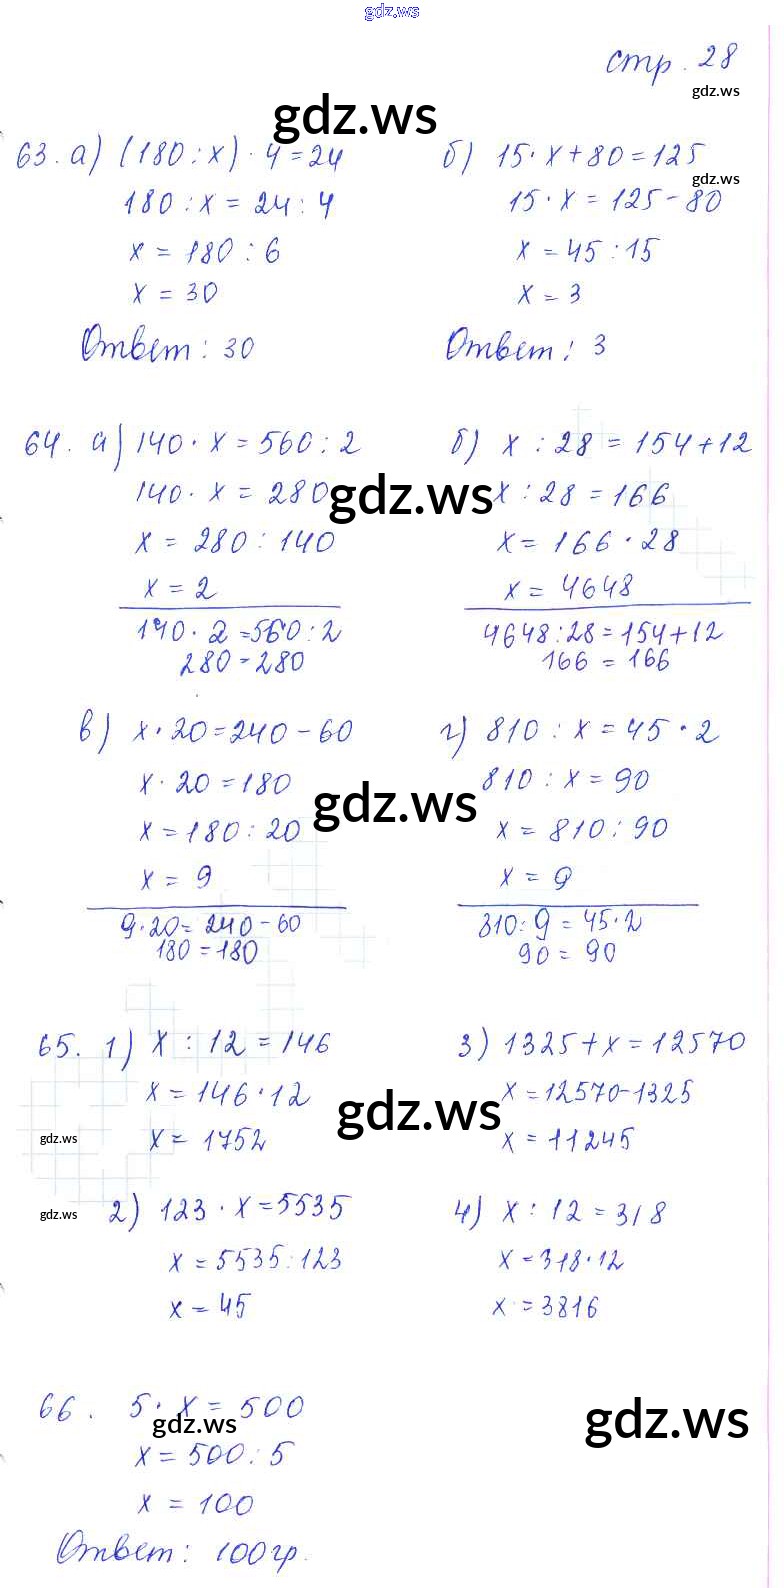 gdz.ws
стр. 28
gdz.ws
gdz.ws
63. а) (180 : x) · 4 = 24
180 : x = 24 : 4
x = 180 : 6
x = 30
Ответ: 30
б) 15 · x + 80 = 125
gdz.ws
15 · x = 125 - 80
x = 45 : 15
x = 3
Ответ: 3
64. а) 140 · x = 560 : 2
140 · x = 280
gdz.ws
x = 280 : 140
x = 2
140 · 2 = 560 : 2
280 = 280
б) x : 28 = 154 + 12
x : 28 = 166
x = 166 · 28
x = 4648
4648 : 28 = 154 + 12
166 = 166
в) x · 20 = 240 - 60
x · 20 = 180
gdz.ws
x = 180 : 20
x = 9
9 · 20 = 240 - 60
180 = 180
г) 810 : x = 45 · 2
810 : x = 90
x = 810 : 90
x = 9
810 : 9 = 45 · 2
90 = 90
65. 1) x : 12 = 146
x = 146 · 12
gdz.ws
x = 1752
gdz.ws
3) 1325 + x = 12570
x = 12570 - 1325
x = 11245
gdz.ws
2) 123 · x = 5535
x = 5535 : 123
x = 45
4) x : 12 = 318
x = 318 · 12
x = 3816
66. 5 · x = 500
gdz.ws
gdz.ws
x = 500 : 5
x = 100
Ответ: 100 гр.